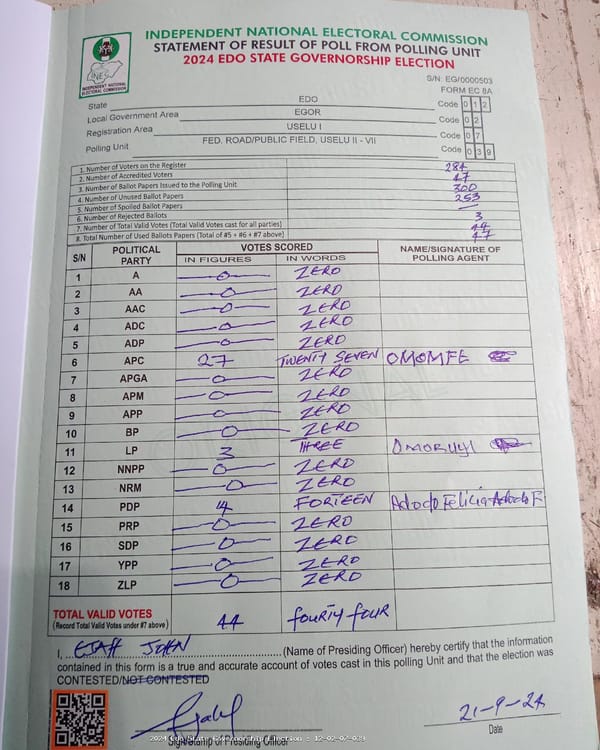 INDEPENDENT NATIONAL ELECTORAL COMMISSION
STATEMENT OF RESULT OF POLL FROM POLLING UNIT
2024 EDO STATE GOVERNORSHIP ELECTION
INEC
INDEPENDENT NATIONAL
ELECTORAL COMMISSION
S/N: EG/0000503
FORM EC 8A
State EDO Code 0 1 2
Local Government Area EGOR Code 0 2
Registration Area USELU I Code 0 7
Polling Unit FED. ROAD/PUBLIC FIELD, USELU II - VII Code 0 3 9
1. Number of Voters on the Register 284
2. Number of Accredited Voters 47
3. Number of Ballot Papers Issued to the Polling Unit 300
4. Number of Unused Ballot Papers 253
5. Number of Spoiled Ballot Papers —
6. Number of Rejected Ballots 3
7. Number of Total Valid Votes (Total Valid Votes cast for all parties) 44
8. Total Number of Used Ballots Papers (Total of #5 + #6 + #7 above) 47
S/N POLITICAL PARTY VOTES SCORED NAME/SIGNATURE OF POLLING AGENT
IN FIGURES IN WORDS
1 A 0 ZERO
2 AA 0 ZERO
3 AAC 0 ZERO
4 ADC 0 ZERO
5 ADP 0 ZERO
6 APC 27 TWENTY SEVEN OMOMFE
7 APGA 0 ZERO
8 APM 0 ZERO
9 APP 0 ZERO
10 BP 0 ZERO
11 LP 3 THREE OMORUYI
12 NNPP 0 ZERO
13 NRM 0 ZERO
14 PDP 14 FORTEEN Adodo Felicia Adodo F
15 PRP 0 ZERO
16 SDP 0 ZERO
17 YPP 0 ZERO
18 ZLP 0 ZERO
TOTAL VALID VOTES 44 FOURTY FOUR
(Record Total Valid Votes under #7 above)
I, JOHN (Name of Presiding Officer) hereby certify that the information
contained in this form is a true and accurate account of votes cast in this polling Unit and that the election was
CONTESTED/NOT CONTESTED
21-9-24
Signature/Stamp of Presiding Officer Date